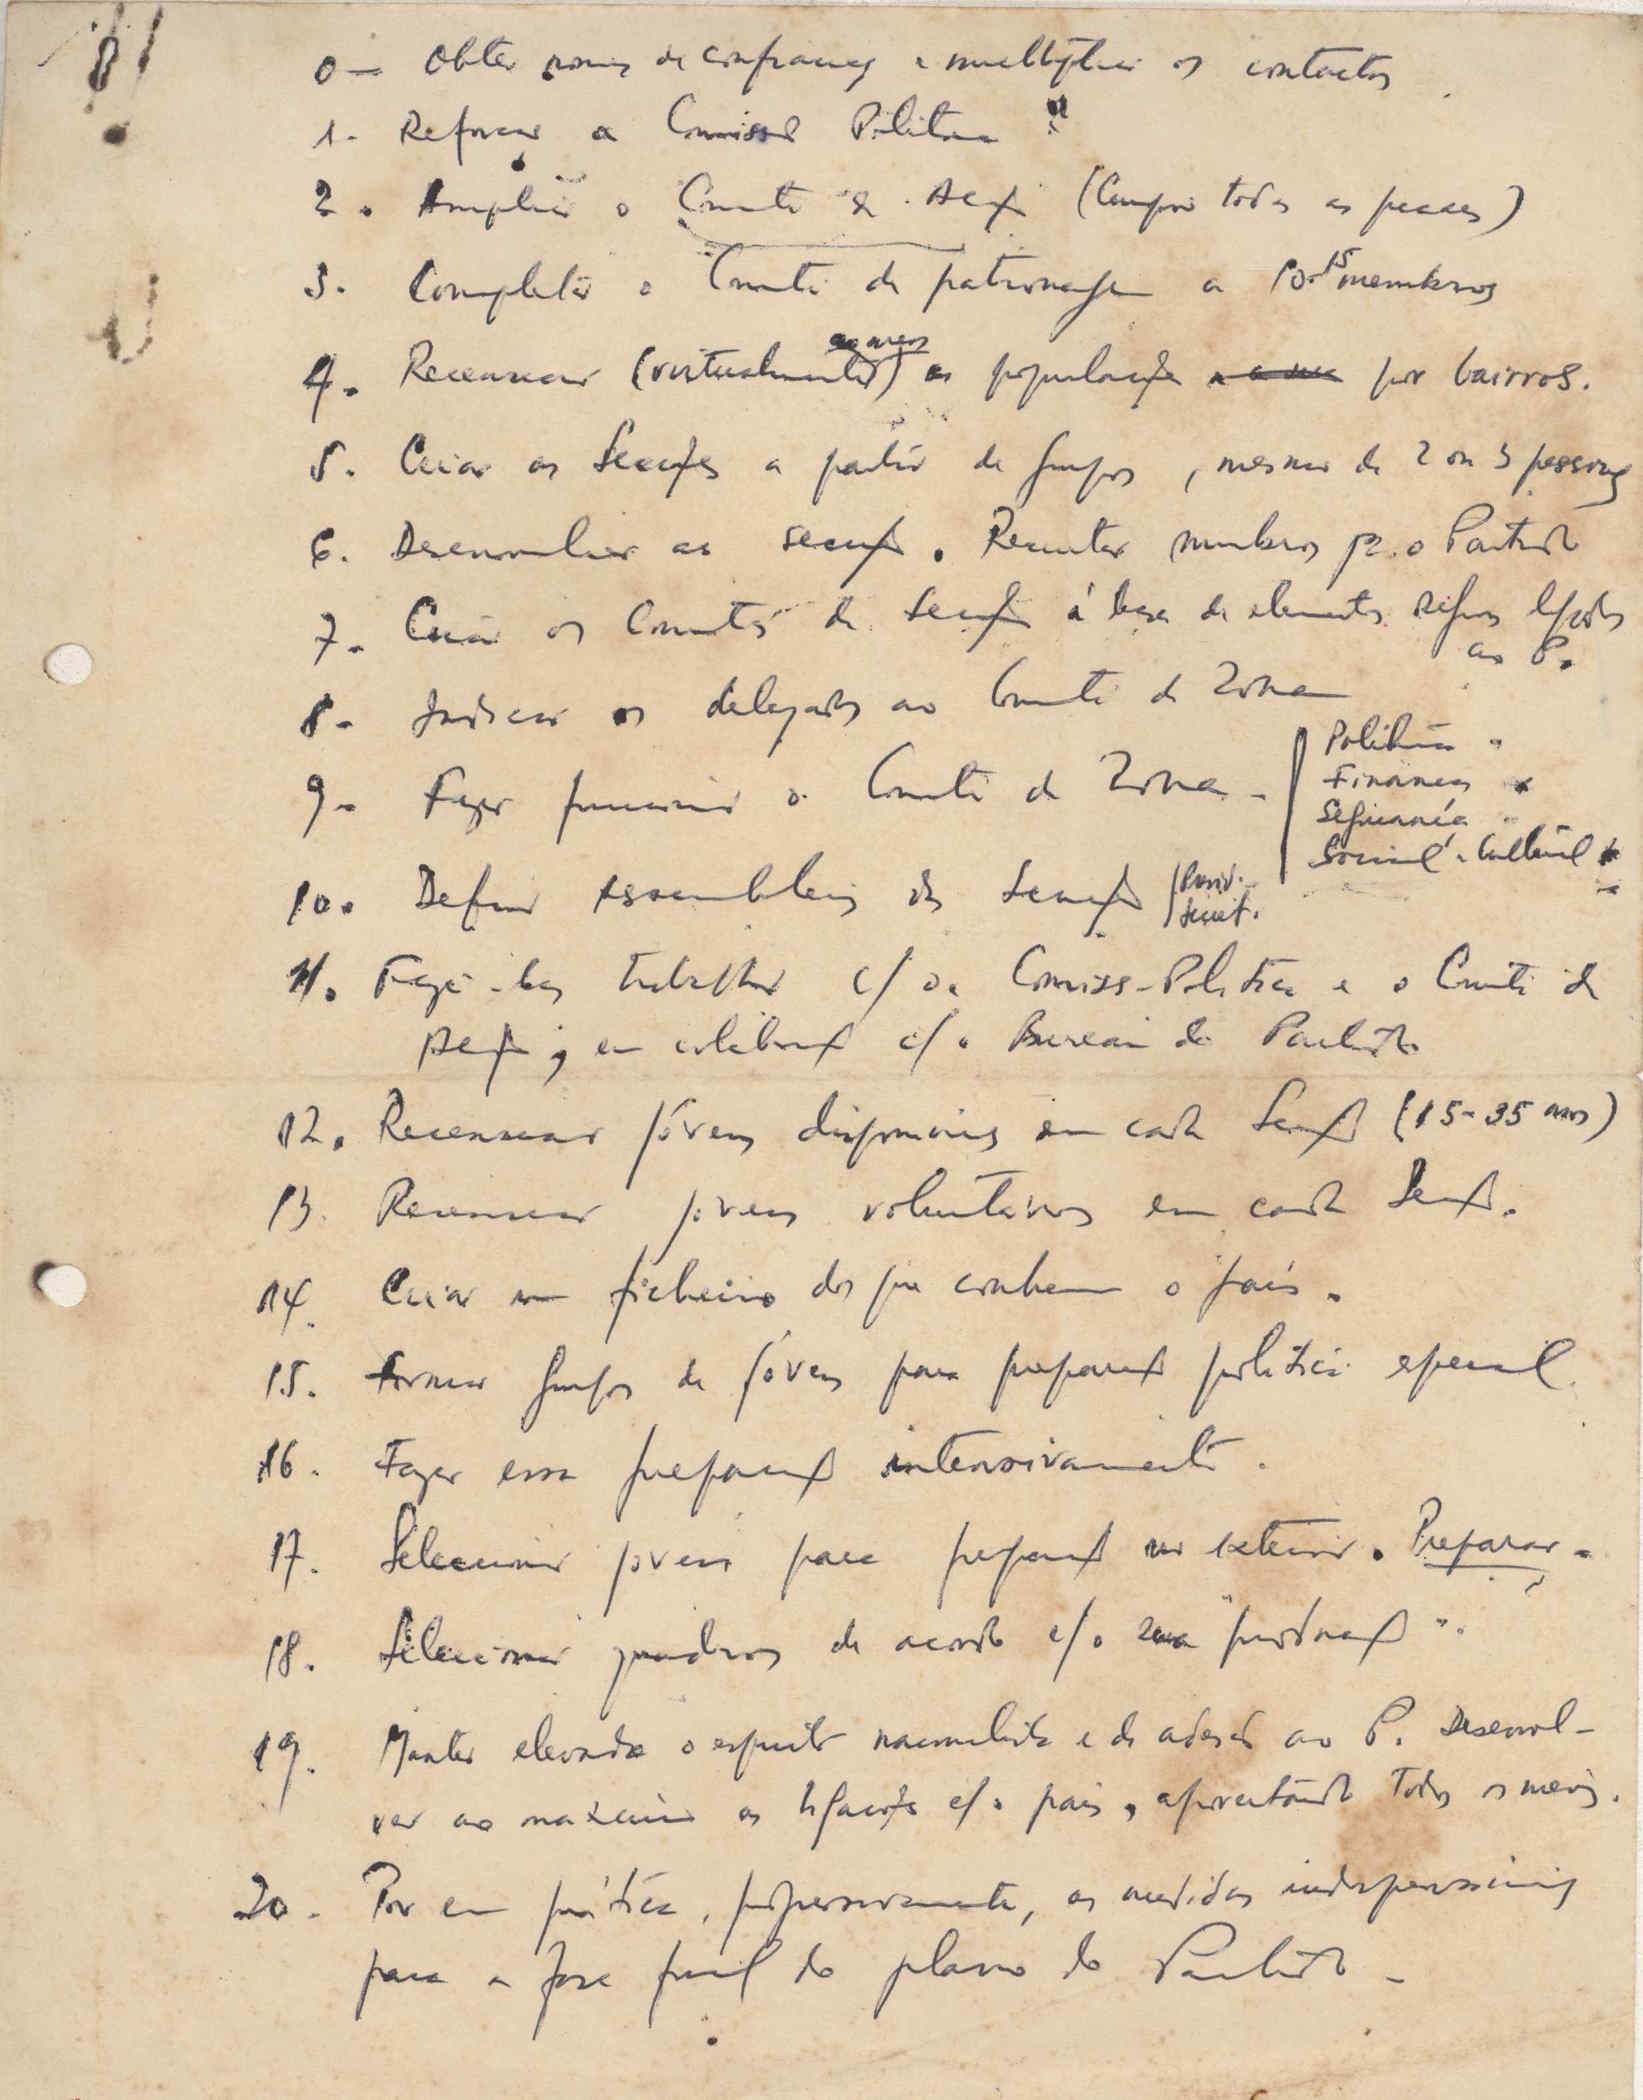 0 - Obter nomes de confiança e multiplicar os contactos
1. Reforçar a Comissão Política
2. Ampliar o Comité de Acção (Compor todas as peças)
3. Completar o Comité de patronagem a 10-15 membros
4. Recensear (virtualmente) ao menos as populações por bairros.
5. Criar as Secções a partir de grupos, mesmo de 2 ou 3 pessoas
6. Desenvolver as secções. Recrutar membros pª o Partido
7. Criar os Comités de Secção á base de elementos seguros ligados
ao P.
8. Indicar os delegados ao Comité de Zona
9. Fazer funcionar o Comité de Zona -
Política
Finanças
Segurança
Social-Cultural
10. Definir Assembleias de Secção
Presid.
Secret.
11. Fazê-las trabalhar c/ a Comiss-Política e o Comité de
Acção, em colaboração c/ o Bureau do Partido
12. Recensear jóvens disponíveis em cada Secção (15-35 anos)
13. Recensear jovens voluntários em cada Secção.
14. Criar um ficheiro dos que conhecem o país.
15. Formar grupos de jóvens para preparação política especial.
16. Fazer essa preparação intensivamente.
17. Seleccionar jovens para preparação no exterior. Preparar-
18. Seleccionar quadros de acordo c/ a sua "
".
19. Manter elevado o espírito nacionalista e de adesão ao P. Desenvol-
ver ao máximo as ligações c/ o país, aproveitando todos os meios.
20. Por em prática, progressivamente, as medidas indispensáveis
para a fase final do plano do Partido -